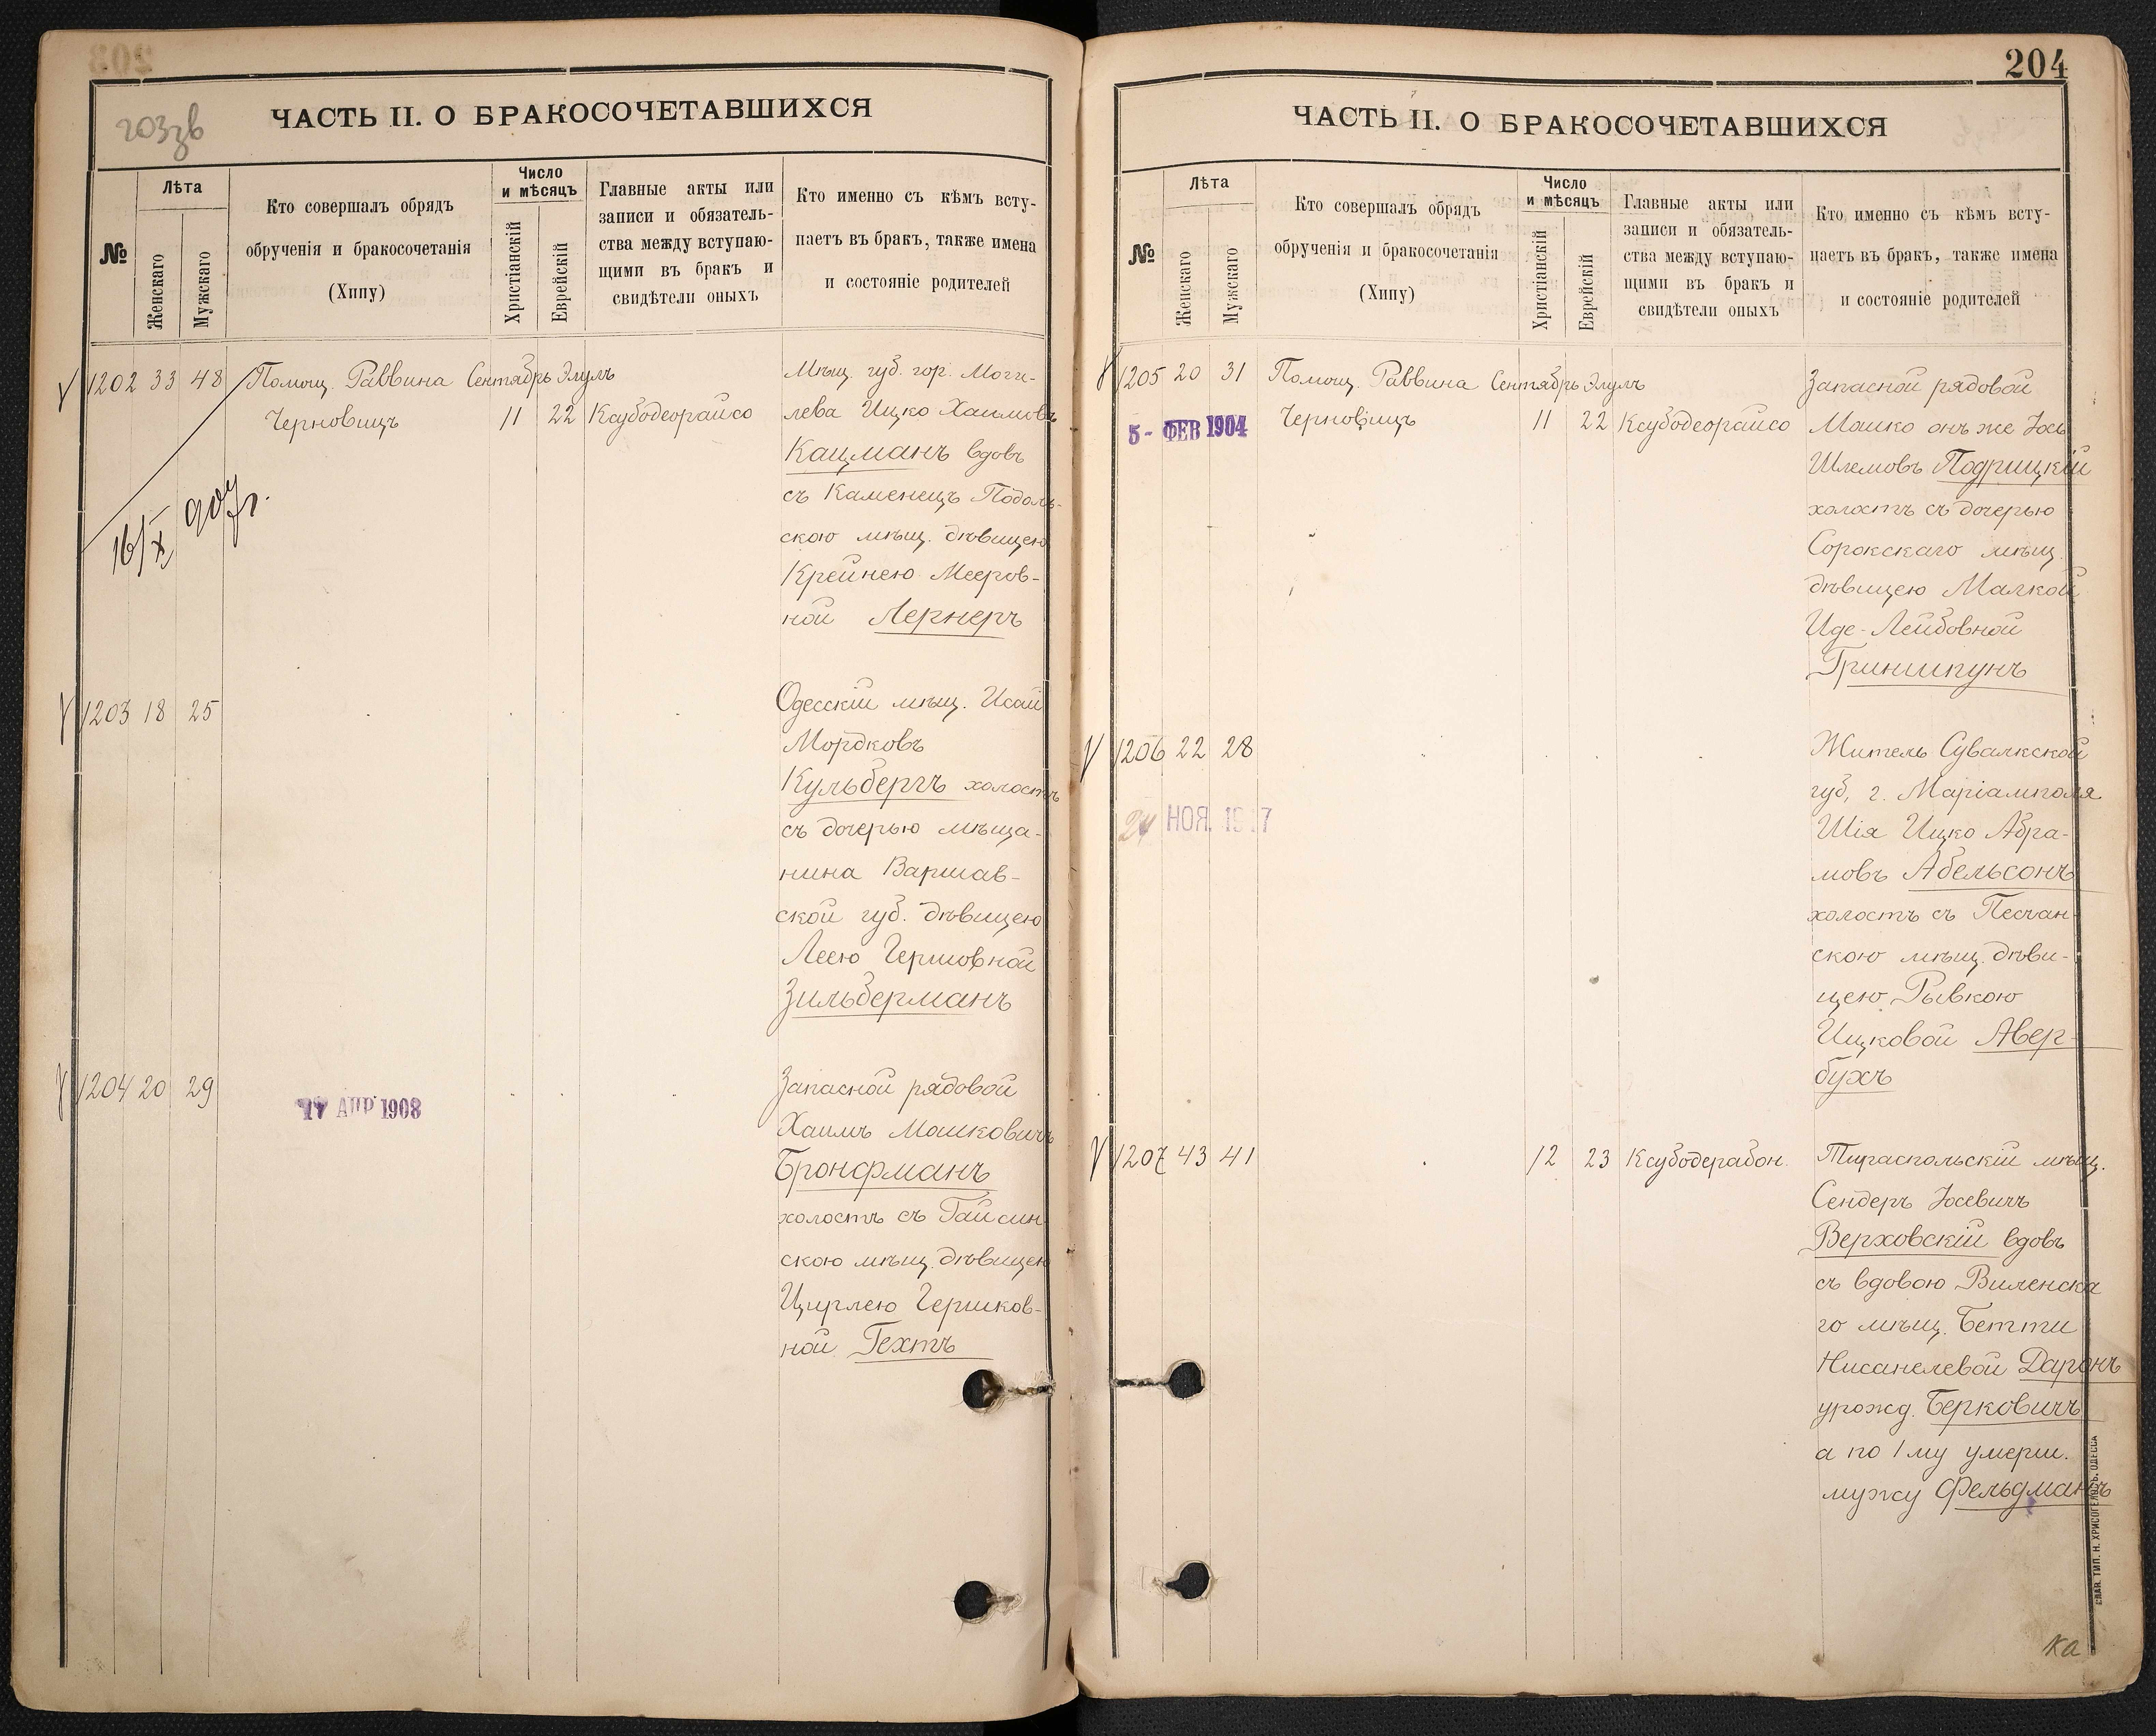 203зв
ЧАСТЬ II. О БРАКОСОЧЕТАВШИХСЯ
№
Лѣта
Женскаго
Мужскаго
Кто совершалъ обрядъ
обрученія и бракосочетанія
(Хипу)
Число
и мѣсяцъ
Христіанскій
Еврейскій
Главные акты или
записи и обязатель-
ства между вступаю-
щими въ бракъ и
свидѣтели оныхъ
Кто именно съ кѣмъ всту-
паетъ въ бракъ, также имена
и состояніе родителей
1202 33 48 Помощ. Раввина Сентябрь Элулъ
Черновицъ 11 22 Ксубодеорайсо
16/X 907г.
Мѣщ. губ. гор. Моги-
лева Ицко Хаимовъ
Кацманъ вдовъ
съ Каменецъ Подоль-
скою мѣщ. дѣвицею
Крейнею Мееров-
ной Лернеръ
1203 18 25
Одесскій мѣщ. Исай
Мордковъ
Кульбергъ холостъ
съ дочерью мѣща-
нина Варшав-
ской губ. дѣвицею
Леею Гершовной
Зильберманъ
1204 20 29
17 АПР 1908
Запасной рядовой
Хаимъ Машковичъ
Бронфманъ
холостъ съ Гайсин-
скою мѣщ. дѣвицею
Цирлею Гершков-
ной Гехтъ
204
ЧАСТЬ II. О БРАКОСОЧЕТАВШИХСЯ
№
Лѣта
Женскаго
Мужскаго
Кто совершалъ обрядъ
обрученія и бракосочетанія
(Хипу)
Число
и мѣсяцъ
Христіанскій
Еврейскій
Главные акты или
записи и обязатель-
ства между вступаю-
щими въ бракъ и
свидѣтели оныхъ
Кто именно съ кѣмъ всту-
паетъ въ бракъ, также имена
и состояніе родителей
1205 20 31 Помощ. Раввина Сентябрь Элулъ
Черновицъ 11 22 Ксубодеорайсо
5- ФЕВ 1904
Запасной рядовой
Мошко онъ же Іось
Шлемовъ Подрицкій
холостъ съ дочерью
Сорокскаго мѣщ.
дѣвицею Малкой
Иде-Лейбовной
Гриншпунъ
1206 22 28
24 НОЯ. 1917
Житель Сувалкской
губ, г. Маріамполя
Шія Ицко Абра-
мовъ Абельсонъ
холостъ съ Песчан-
скою мѣщ. дѣви-
цею Рывкою
Ицковой Авер-
бухъ
1207 43 41 12 23 Ксубодерабон.
Тираспольскій мѣщ.
Сендеръ Іосевичъ
Верховскій вдовъ
съ вдовою Виленска
го мѣщ. Бетти
Нисанелевой Даронъ
урожд. Берковичъ
а по 1му умерш.
мужу Фельдманъ
СЛАВ. ТИП. Н. ХРИСОГЕЛОСЪ, ОДЕССА